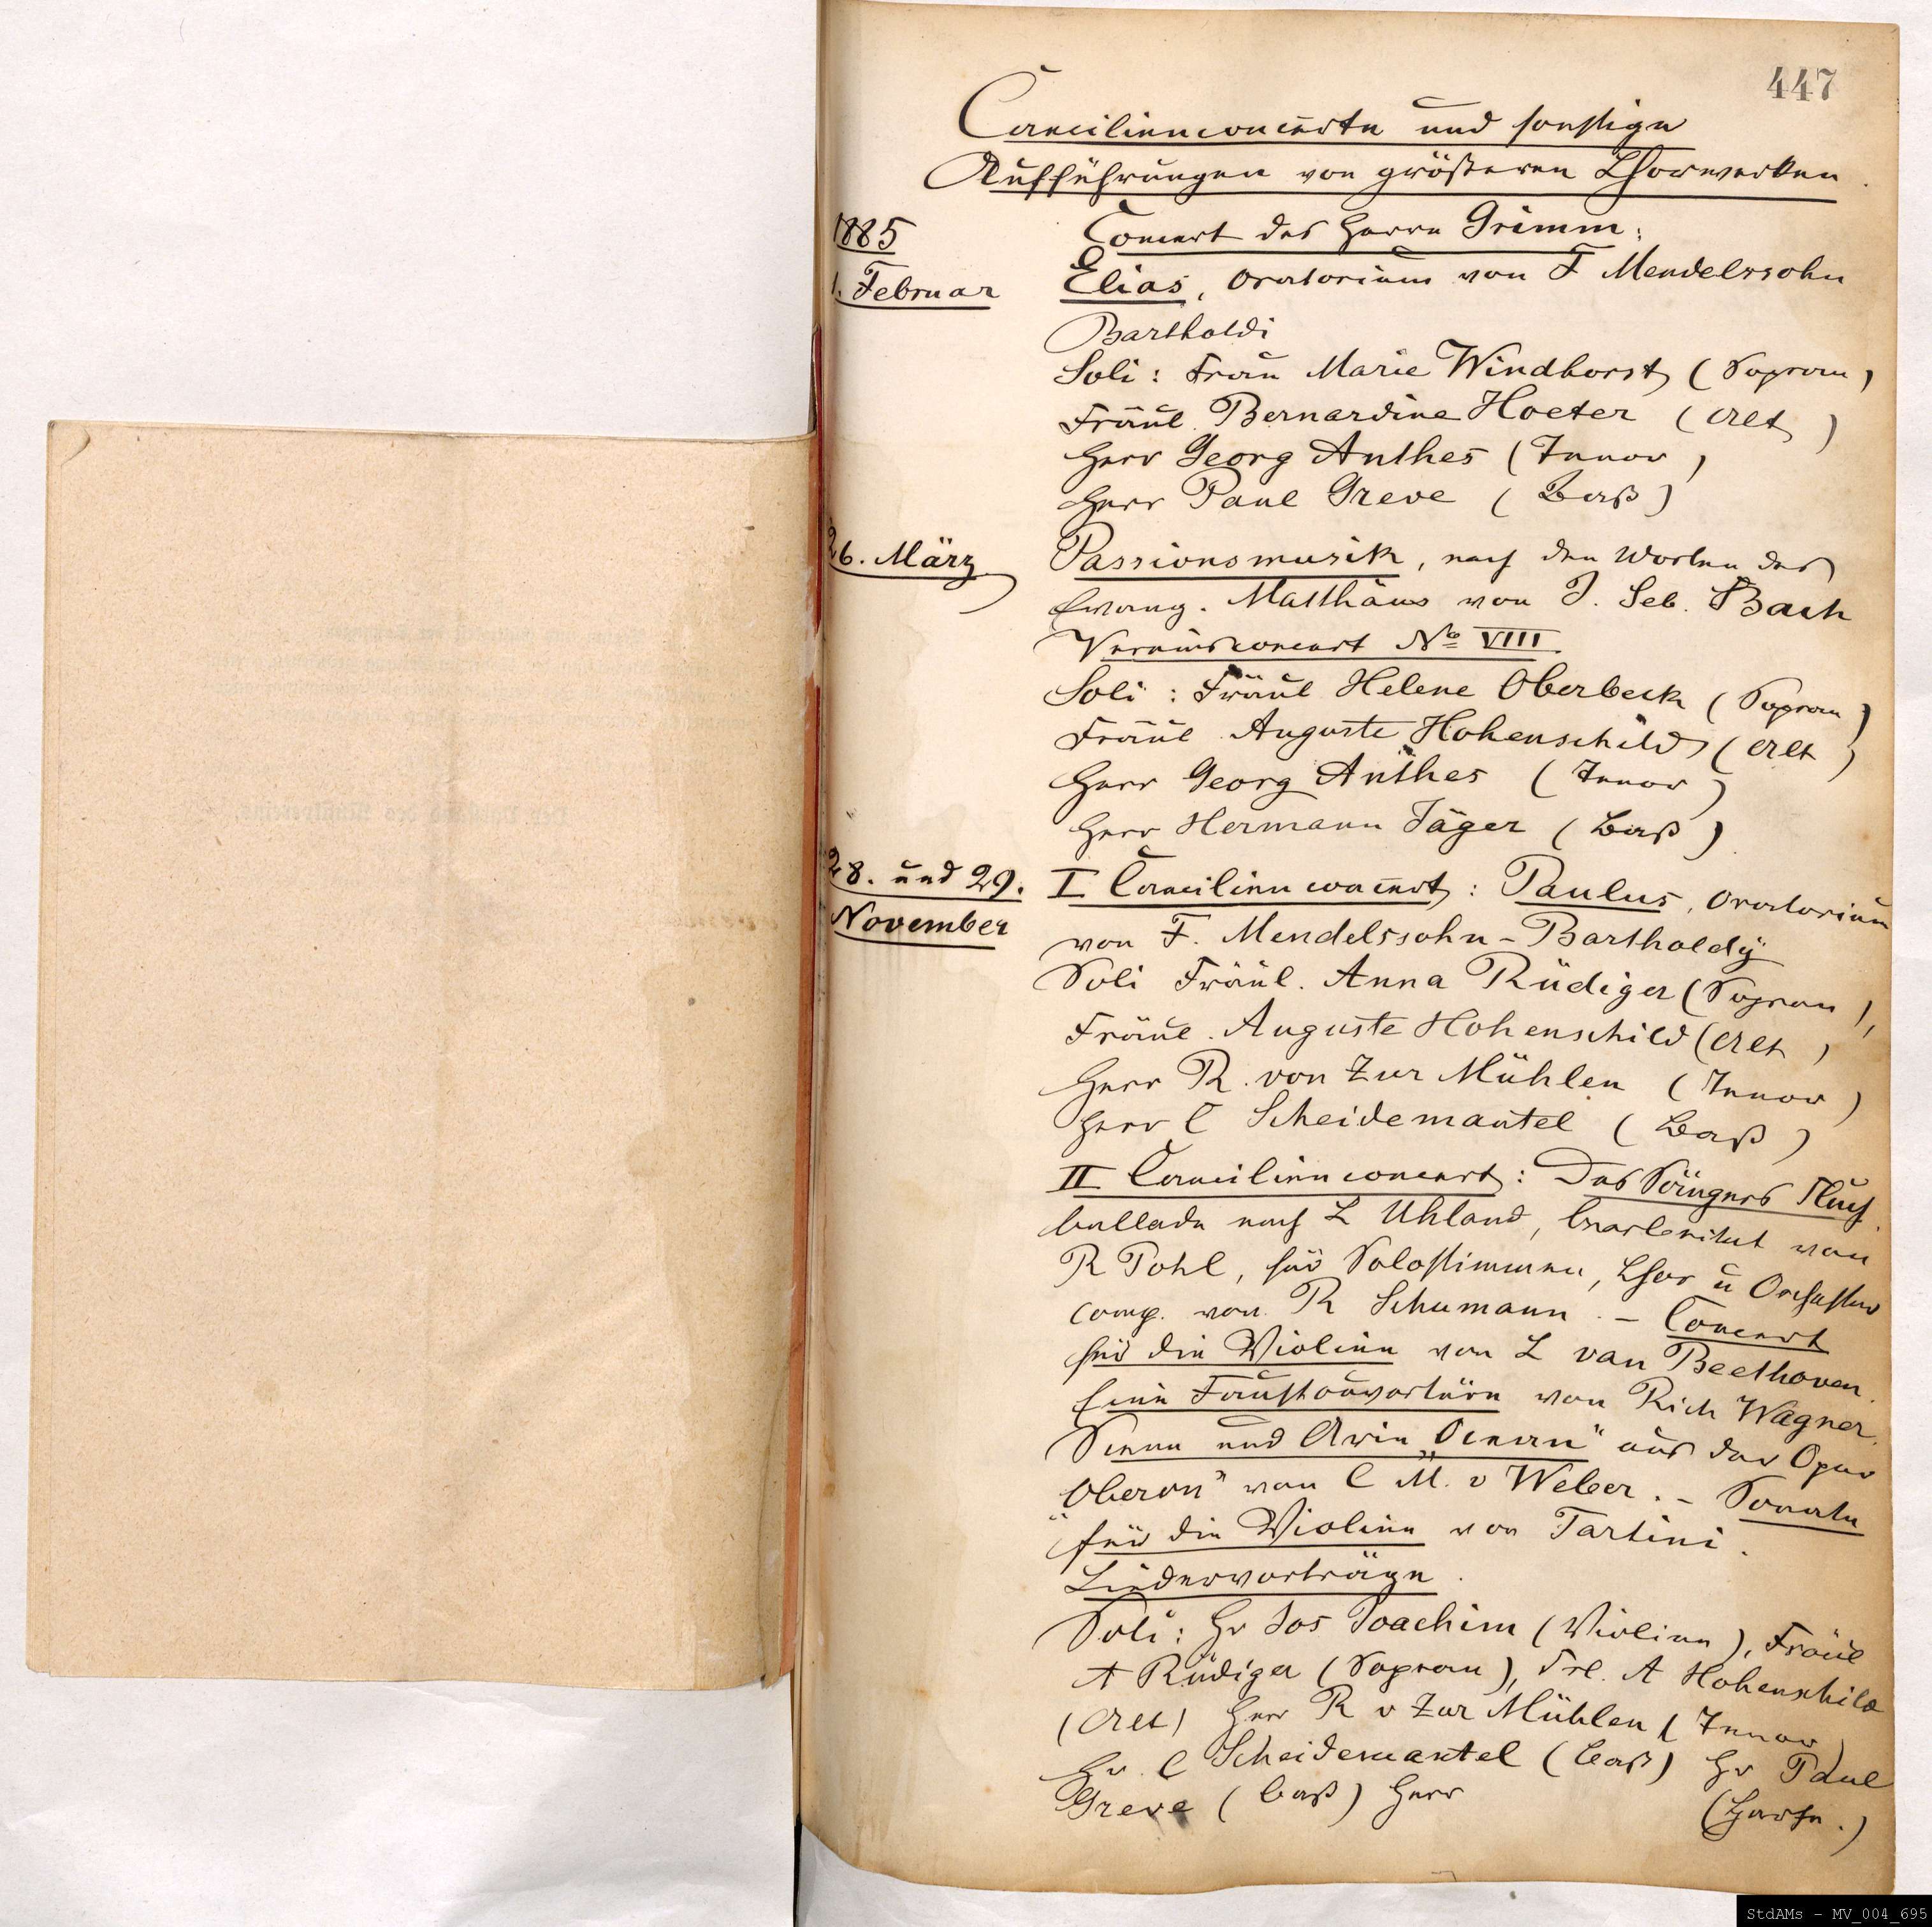 447
Caecilienconcerte und sonstige
Aufführungen von größeren Chorwerken.
1885
Concert des Herrn Grimm:
1. Februar
Elias, Oratorium von F Mendelssohn
Bartholdi
Soli: Frau Marie Windhorst (Sopran)
Fräul. Bernardine Hoeter (Alt)
Herr Georg Anthes (Tenor)
Herr Paul Greve (Baß)
26. März
Passionsmusik, nach den Worten des
Evang. Matthäus von J. Seb. Bach
Vereinsconcert No VIII.
Soli: Fräul Helene Oberbeck (Sopran)
Fräul. Auguste Hohenschild (Alt)
Herr Georg Anthes (Tenor)
Herr Hermann Jäger (Baß)
28. und 29.
November
I Caecilienconcert: Paulus, Oratorium
von F. Mendelssohn-Bartholdÿ
Soli Fräul. Anna Rüdiger (Sopran),
Fräul. Auguste Hohenschild (Alt)
Herr R. von Zur Mühlen (Tenor)
Herr C Scheidemantel (Baß)
II Caecilienconcert: Des Sängers Fluch.
Ballade nach L Uhland, bearbeitet von
R Pohl, für Solostimmen, Chor u Orchester
comp. von R Schumann. – Concert
für die Violine von L van Beethoven.
Eine Faustouvertüre von Rich Wagner.
Scene und Arie „Ocean" aus der Oper
„Oberon" von C M. v Weber. – Sonate
für die Violine von Tartini.
Liedervorträge.
Soli: Hr Jos Joachim (Violine), Fräul
A Rüdiger (Sopran), Frl. A Hohenschild
(Alt) Herr R v Zur Mühlen (Tenor)
Hr. C Scheidemantel (Baß) Hr Paul
Greve (Baß) Herr (Harfe.)
StdAMs - MV_004_695